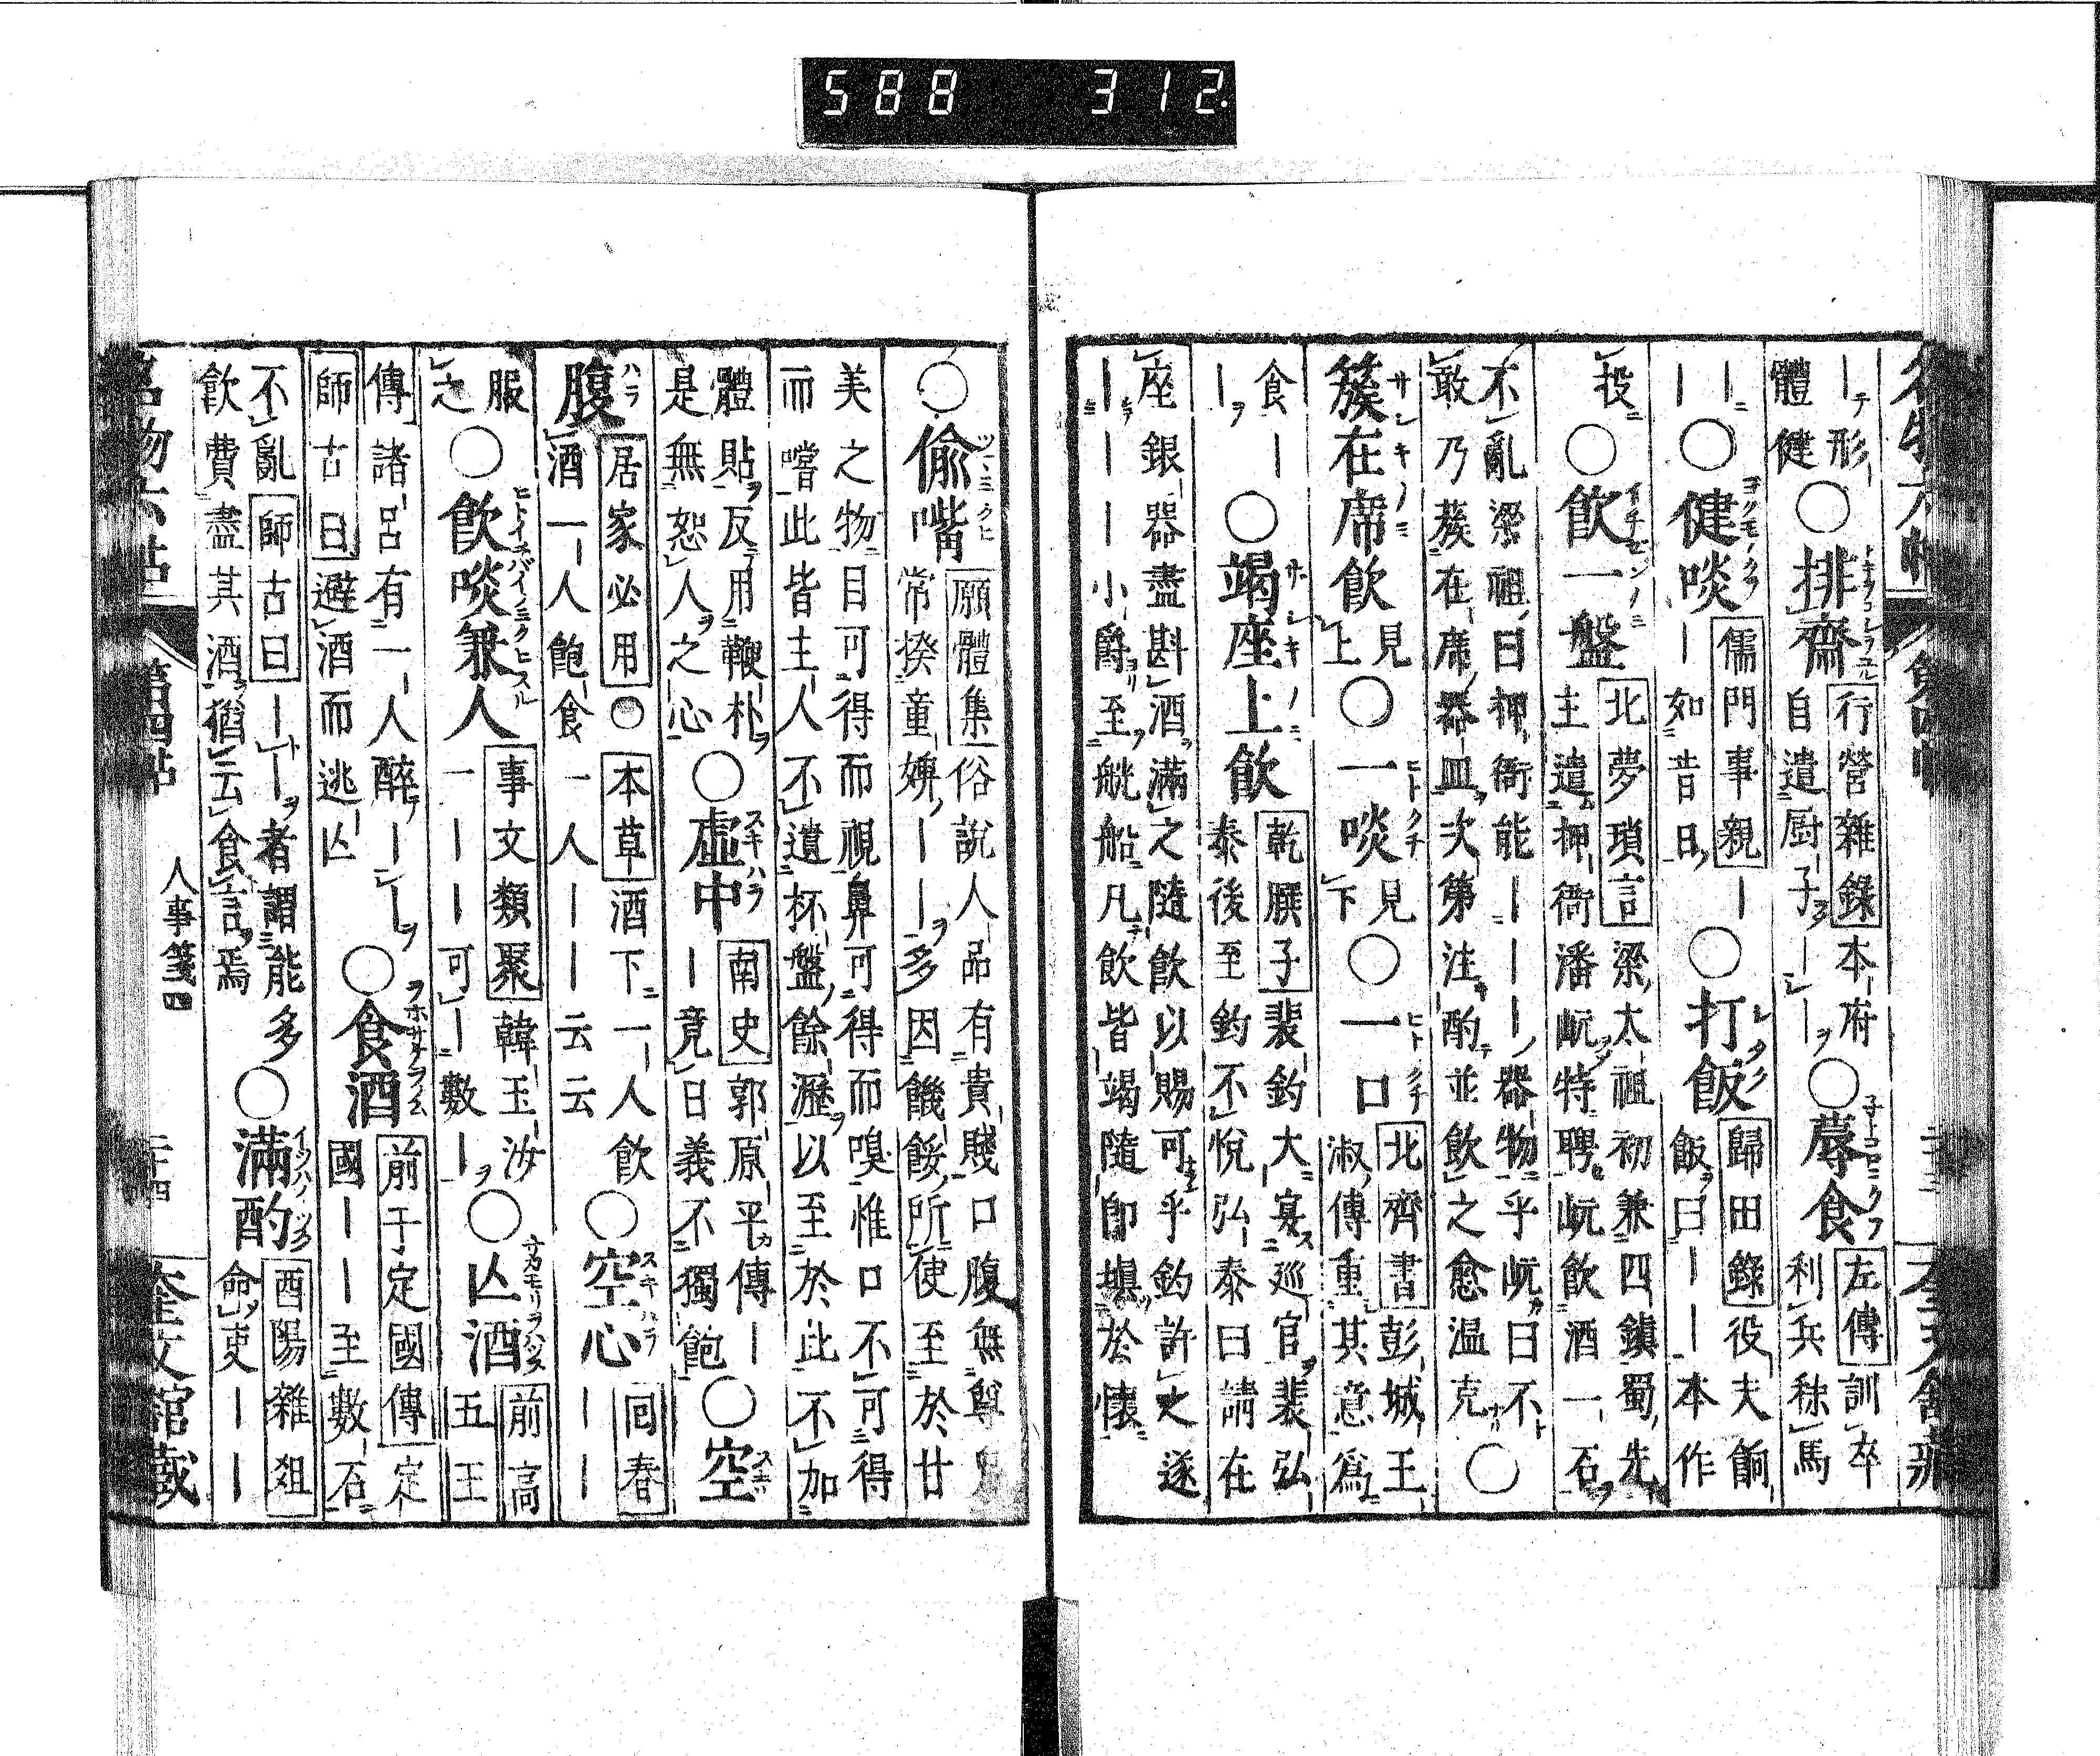 588 312
｜形
體健○排齋行營雜錄本府
自遣厨子｜｜○蓐食左傳訓卒
利兵秣馬
｜｜○健啖儒門事親｜
｜如昔日○打飯歸田錄役夫餉
飯曰｜｜本作
投○飲一盤北夢瑣言梁太祖初兼四鎮蜀先
主遣押衙潘岏特聘岏飲酒一石
不亂梁祖曰押衙能｜｜｜器物乎岏曰不
敢乃蔟在席器皿次第注酌並飲之愈温克○
簇在席飲見上○一啖見下○一口北齊書彭城王
淑傳重其意爲
食｜
｜○竭座上飲乾𦠆子裴鈞大宴巡官裴弘
泰後至鈞不悅弘泰曰請在
座銀器盡斟酒滿之隨飲以賜可乎鈞許之遂
｜｜｜小爵至觥船凡飲皆竭隨即塡於懷
○偷嘴願體集俗說人品有貴賤口腹無尊
常揆童婢｜｜多因饑餒所使至於甘
美之物目可得而視鼻可得而嗅惟口不可得
而嚐此皆主人不遺杯盤餘瀝以至於此不加
體貼反用鞭朴○虛中南史郭原平傳｜
是無恕人之心｜竟日義不獨飽○空
腹居家必用○本草酒下一人飲
酒一人飽食一人｜｜云云○空心回春
｜｜
服
之○飲啖兼人事文類聚韓玉汝
一｜｜可｜數｜○亾酒前高
五王
傳諸呂有一人醉｜｜○食酒前于定國傳定
國｜｜至數石
師古曰避酒而逃亾
不亂師古曰｜｜者謂能多○滿酌酉陽雜俎
飲費盡其酒猶云食言焉命吏｜｜
人事箋四
奎文館藏